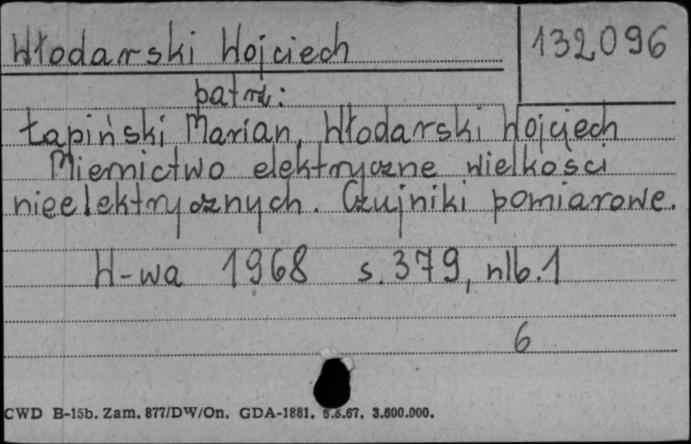 Włodarski Wojciech
132096
patrz:
Łapiński Marian, Włodarski Wojciech
Miernictwo elektryczne wielkości
nieelektrycznych. Czujniki pomiarowe.
W-wa 1968 s. 379, nlb. 1
6
CWD B-15b. Zam. 877/DW/On. GDA-1881. 5.5.67. 3.600.000.